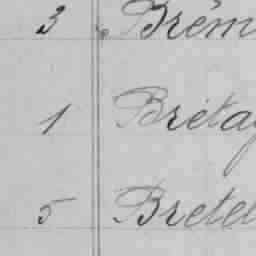 3 Brém
1 Bretag
5 Bretel